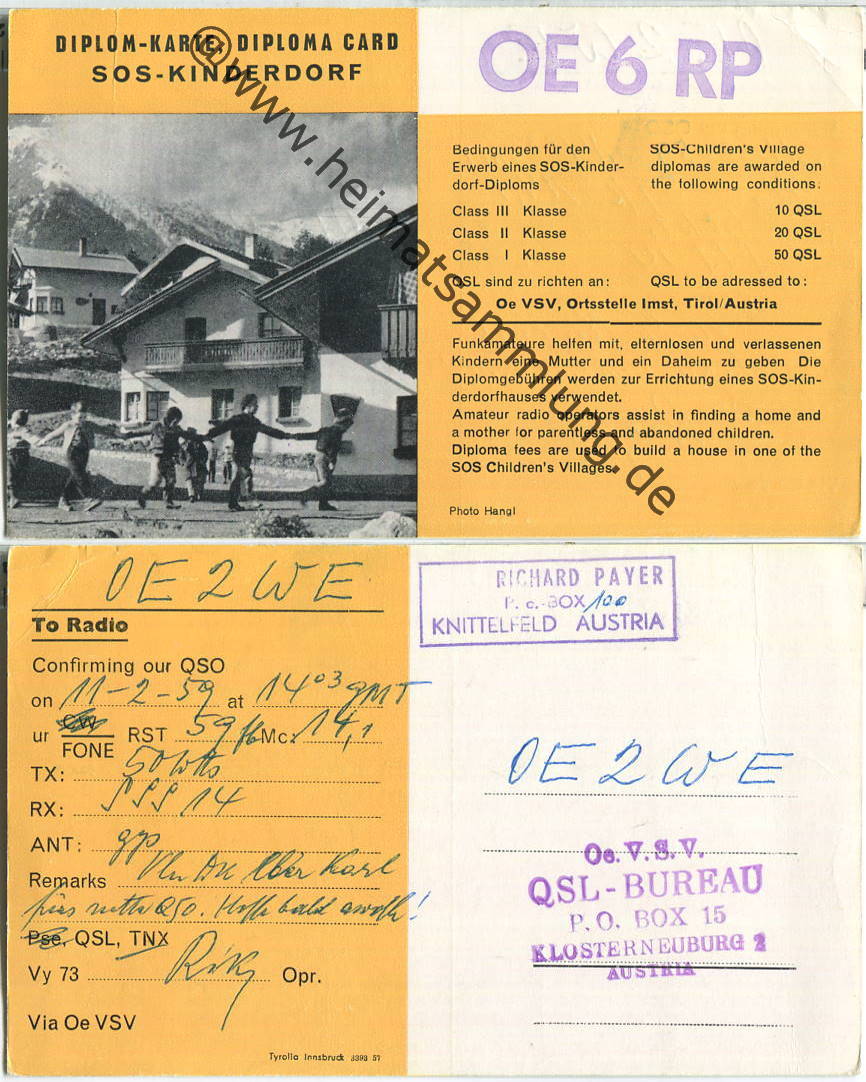 DIPLOM-KARTE, DIPLOMA CARD
SOS-KINDERDORF
OE 6 RP
Bedingungen für den
Erwerb eines SOS-Kinder-
dorf-Diploms
SOS-Children's Village
diplomas are awarded on
the following conditions:
Class III Klasse 10 QSL
Class II Klasse 20 QSL
Class I Klasse 50 QSL
QSL sind zu richten an: QSL to be adressed to:
Oe VSV, Ortsstelle Imst, Tirol/Austria
Funkamateure helfen mit, elternlosen und verlassenen
Kindern eine Mutter und ein Daheim zu geben Die
Diplomgebühren werden zur Errichtung eines SOS-Kin-
derdorfhauses verwendet.
Amateur radio operators assist in finding a home and
a mother for parentless and abandoned children.
Diploma fees are used to build a house in one of the
SOS Children's Villages.
Photo Hangl
@www.heimatsammlung.de
OE2WE
To Radio
Confirming our QSO
on 11-2-59 at 14⁰³ GMT
ur CW FONE RST 59 Mc: 14,1
TX: 50 Wtts
RX: 14
ANT: gp
Remarks Vln Dk lber Karl
fürs nette QSO. Hoffe bald awdh!
Pse, QSL, TNX
Vy 73 Opr.
Via Oe VSV
Tyrolia Innsbruck 3393 57
RICHARD PAYER
P. o.-BOX 100
KNITTELFELD AUSTRIA
OE2WE
Oe. V. S. V.
QSL-BUREAU
P. O. BOX 15
KLOSTERNEUBURG 2
AUSTRIA